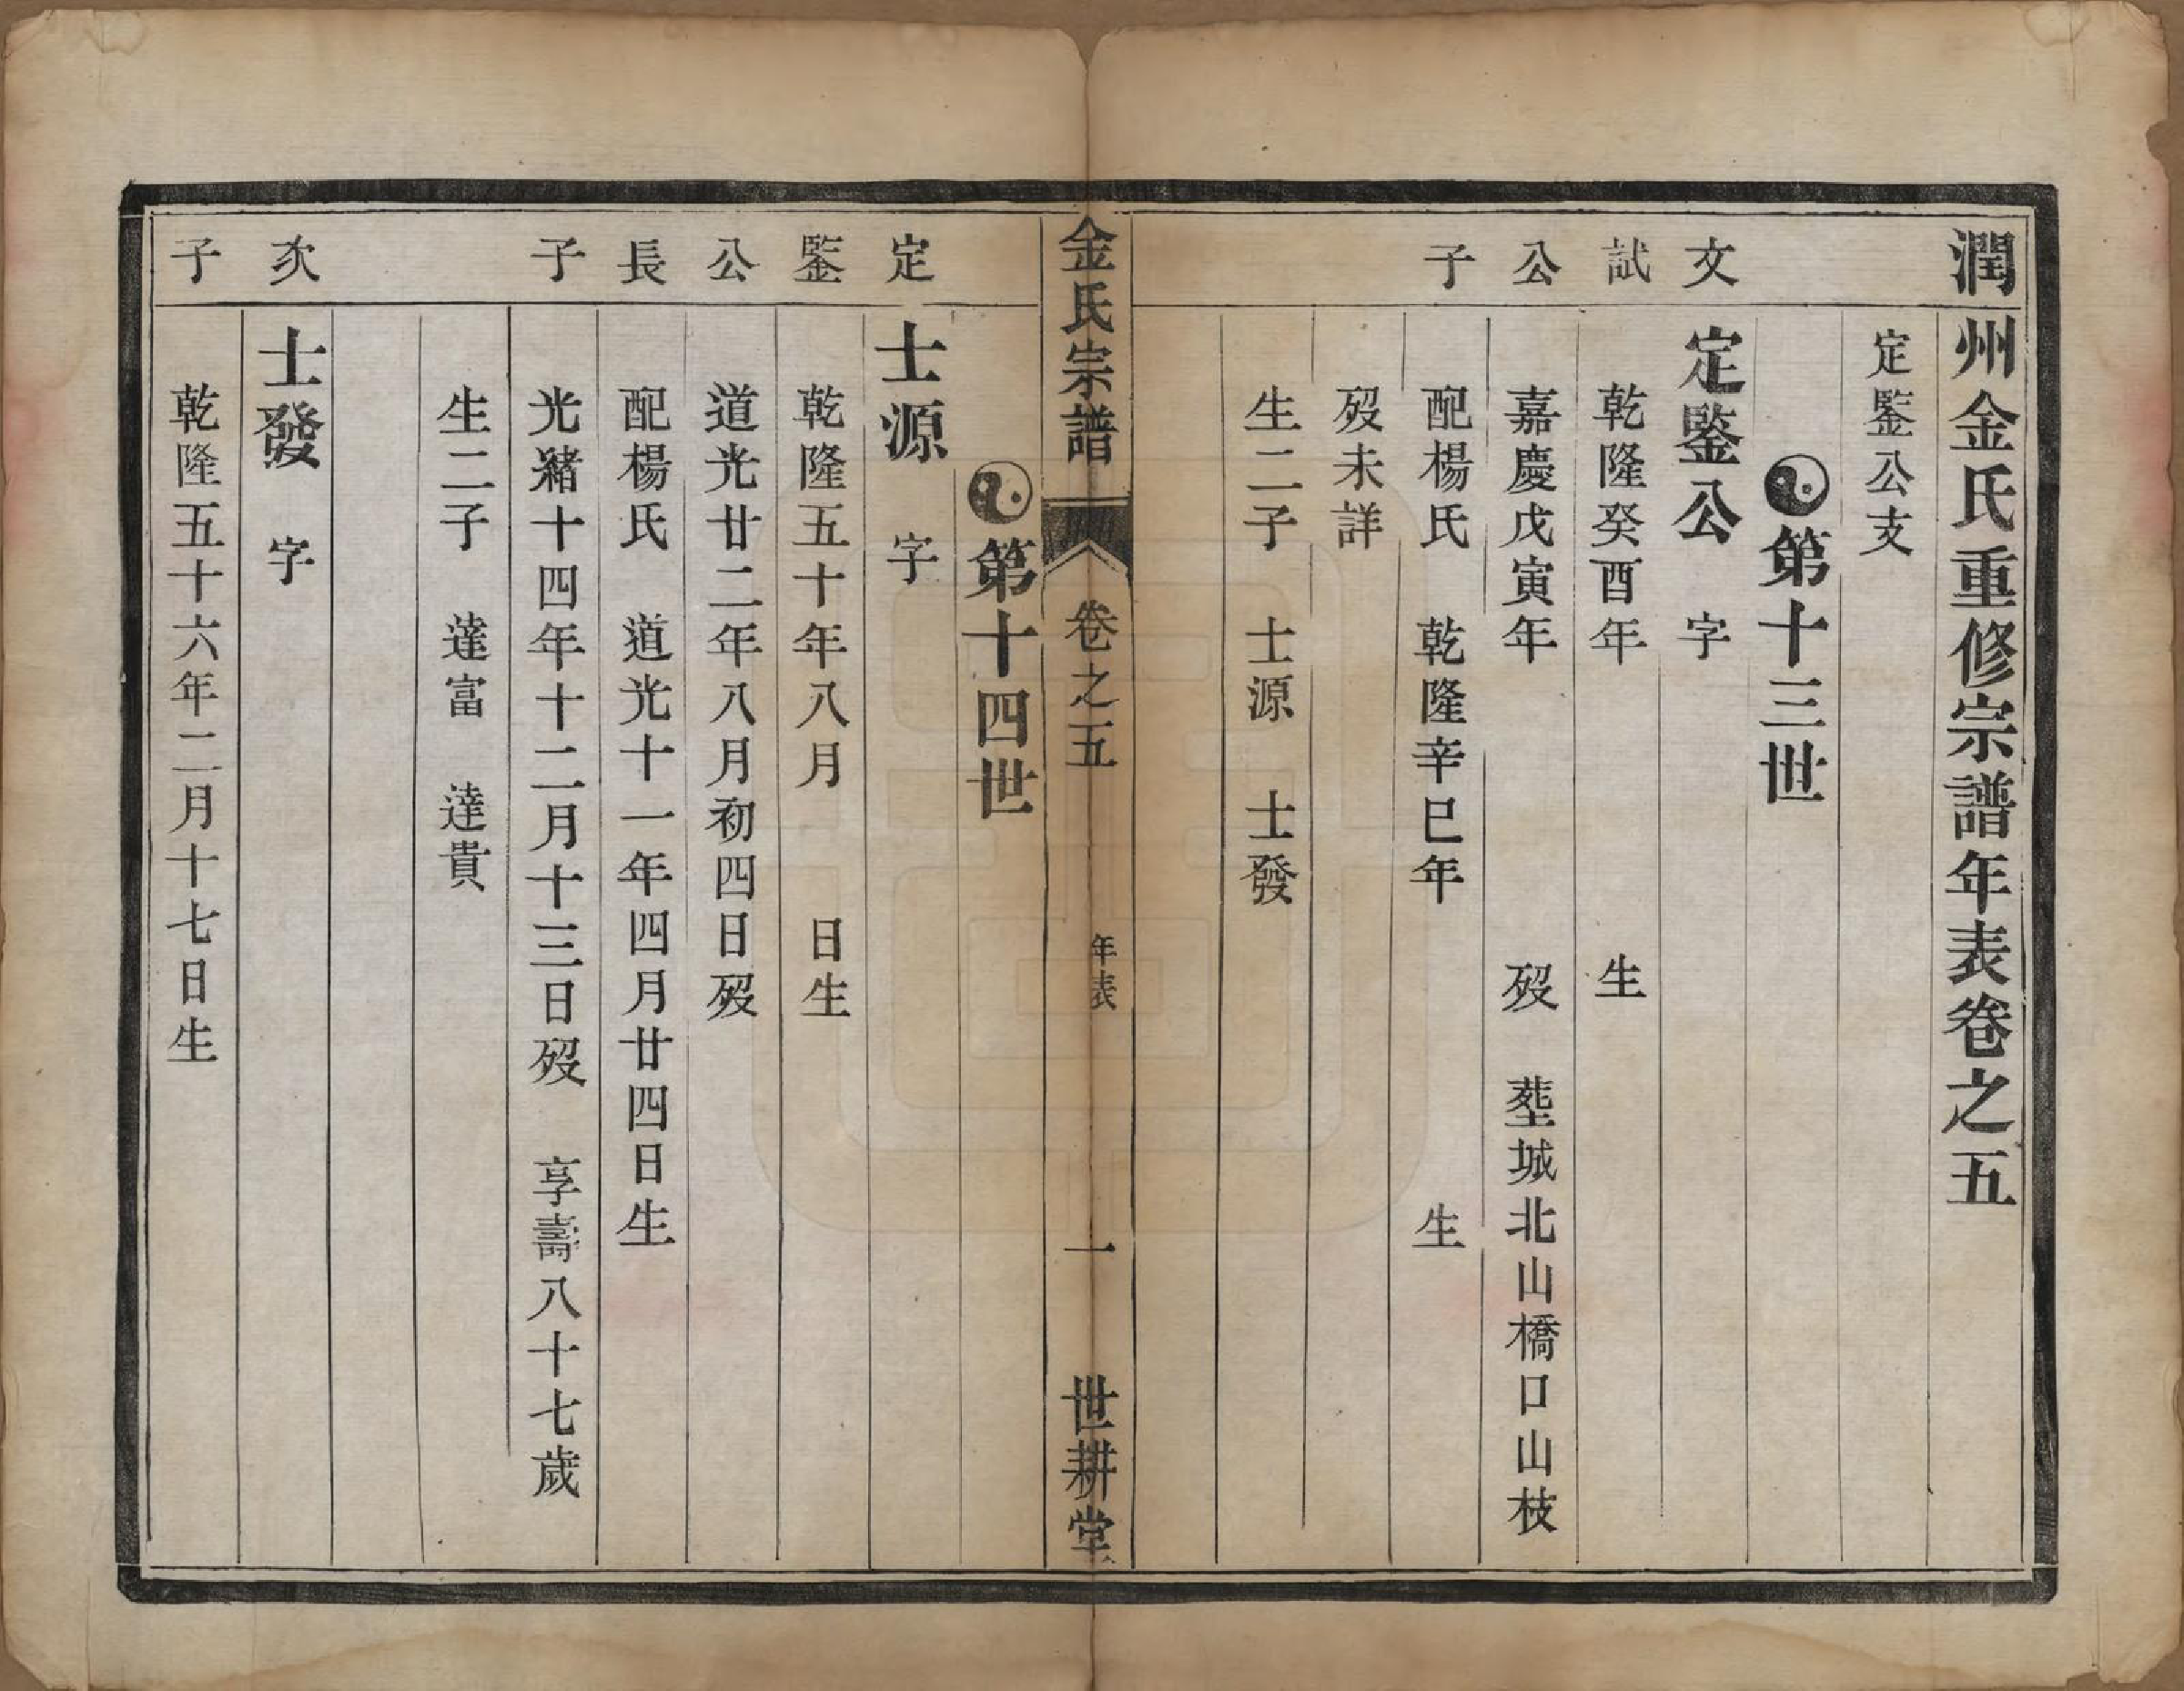 潤州金氏重修宗譜年表卷之五
定鑒公支
第十三世
文試公子
定鑒公 字
乾隆癸酉年 生
嘉慶戊寅年 歿 塟城北山橋口山枝
配楊氏 乾隆辛巳年 生
歿未詳
生二子 士源 士發
金氏宗譜 卷之五 年表 一 世耕堂
第十四世
定鑒公長子
士源 字
乾隆五十年八月 日生
道光廿二年八月初四日歿
配楊氏 道光十一年四月廿四日生
光緒十四年十二月十三日歿 享壽八十七歲
生二子 達富 達貴
次子
士發 字
乾隆五十六年二月十七日生